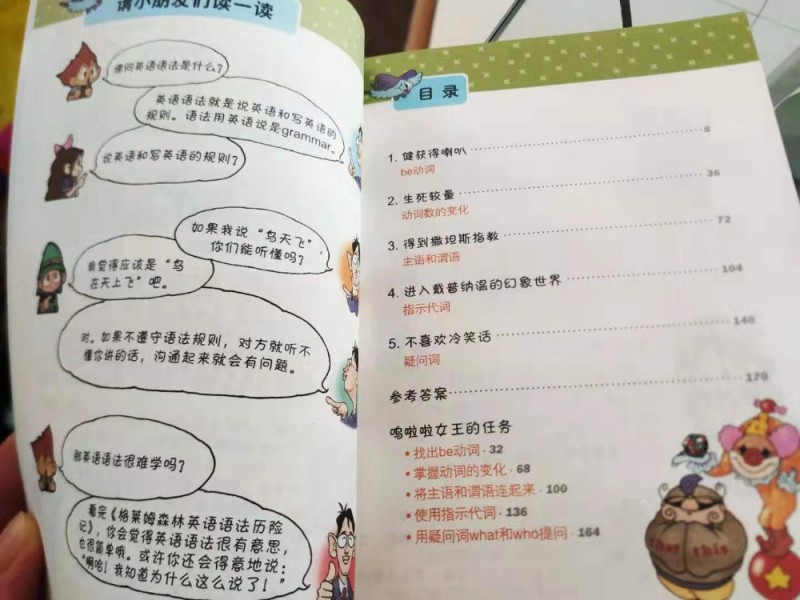 请小朋友们读一读
请问英语语法是什么？
英语语法就是说英语和写英语的
规则。语法用英语说是grammar。
说英语和写英语的规则？
如果我说“鸟天飞”，
你们能听懂吗？
我觉得应该是“鸟
在天上飞”吧。
对。如果不遵守语法规则，对方就听不
懂你讲的话，沟通起来就会有问题。
那英语语法很难学吗？
看完《格莱姆森林英语语法历险
记》，你会觉得英语语法很有意思，
也很简单哦。或许你还会得意地说：
“啊哈！我知道为什么这么说了！”
目录
1. 健获得喇叭 8
be动词
2. 生死较量 36
动词数的变化
3. 得到撒坦斯指教 72
主语和谓语
4. 进入戴普纳谣的幻象世界 104
指示代词
5. 不喜欢冷笑话 140
疑问词
参考答案 170
呜啦啦女王的任务
• 找出be动词 · 32
• 掌握动词的变化 · 68
• 将主语和谓语连起来 · 100
• 使用指示代词 · 136
• 用疑问词what和who提问 · 164
that this